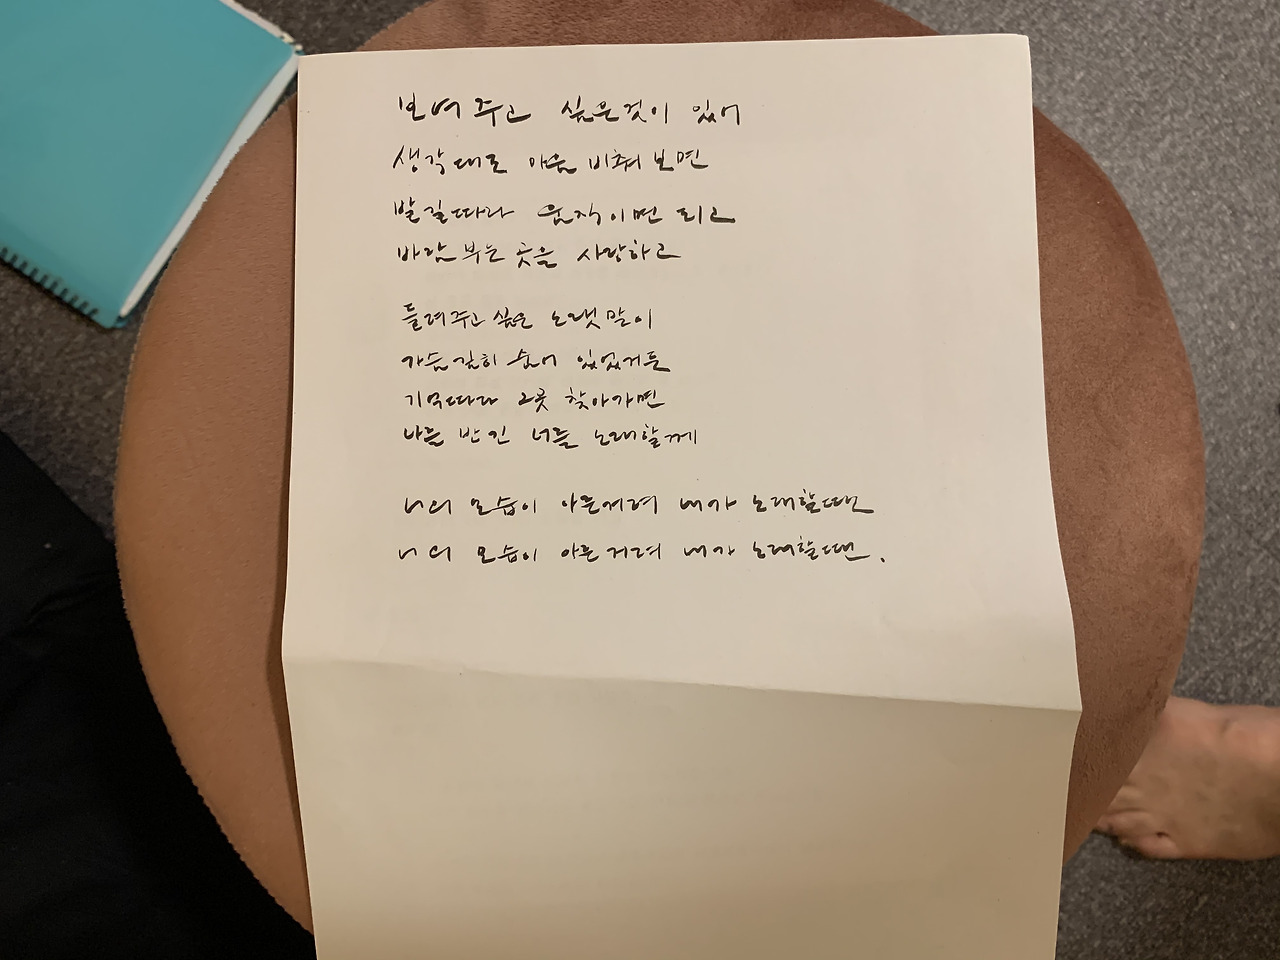 보여주고 싶은것이 있어
생각대로 마음 비춰보면
발길따라 움직이면 되고
바람 부는 곳을 사랑하고
들려주고 싶은 노랫말이
가슴 깊히 숨어 있었거든
기억따라 그곳 찾아가면
나를 반긴 너를 노래할께
너의 모습이 아른거려 내가 노래할때면
너의 모습이 아른거려 내가 노래할때면.